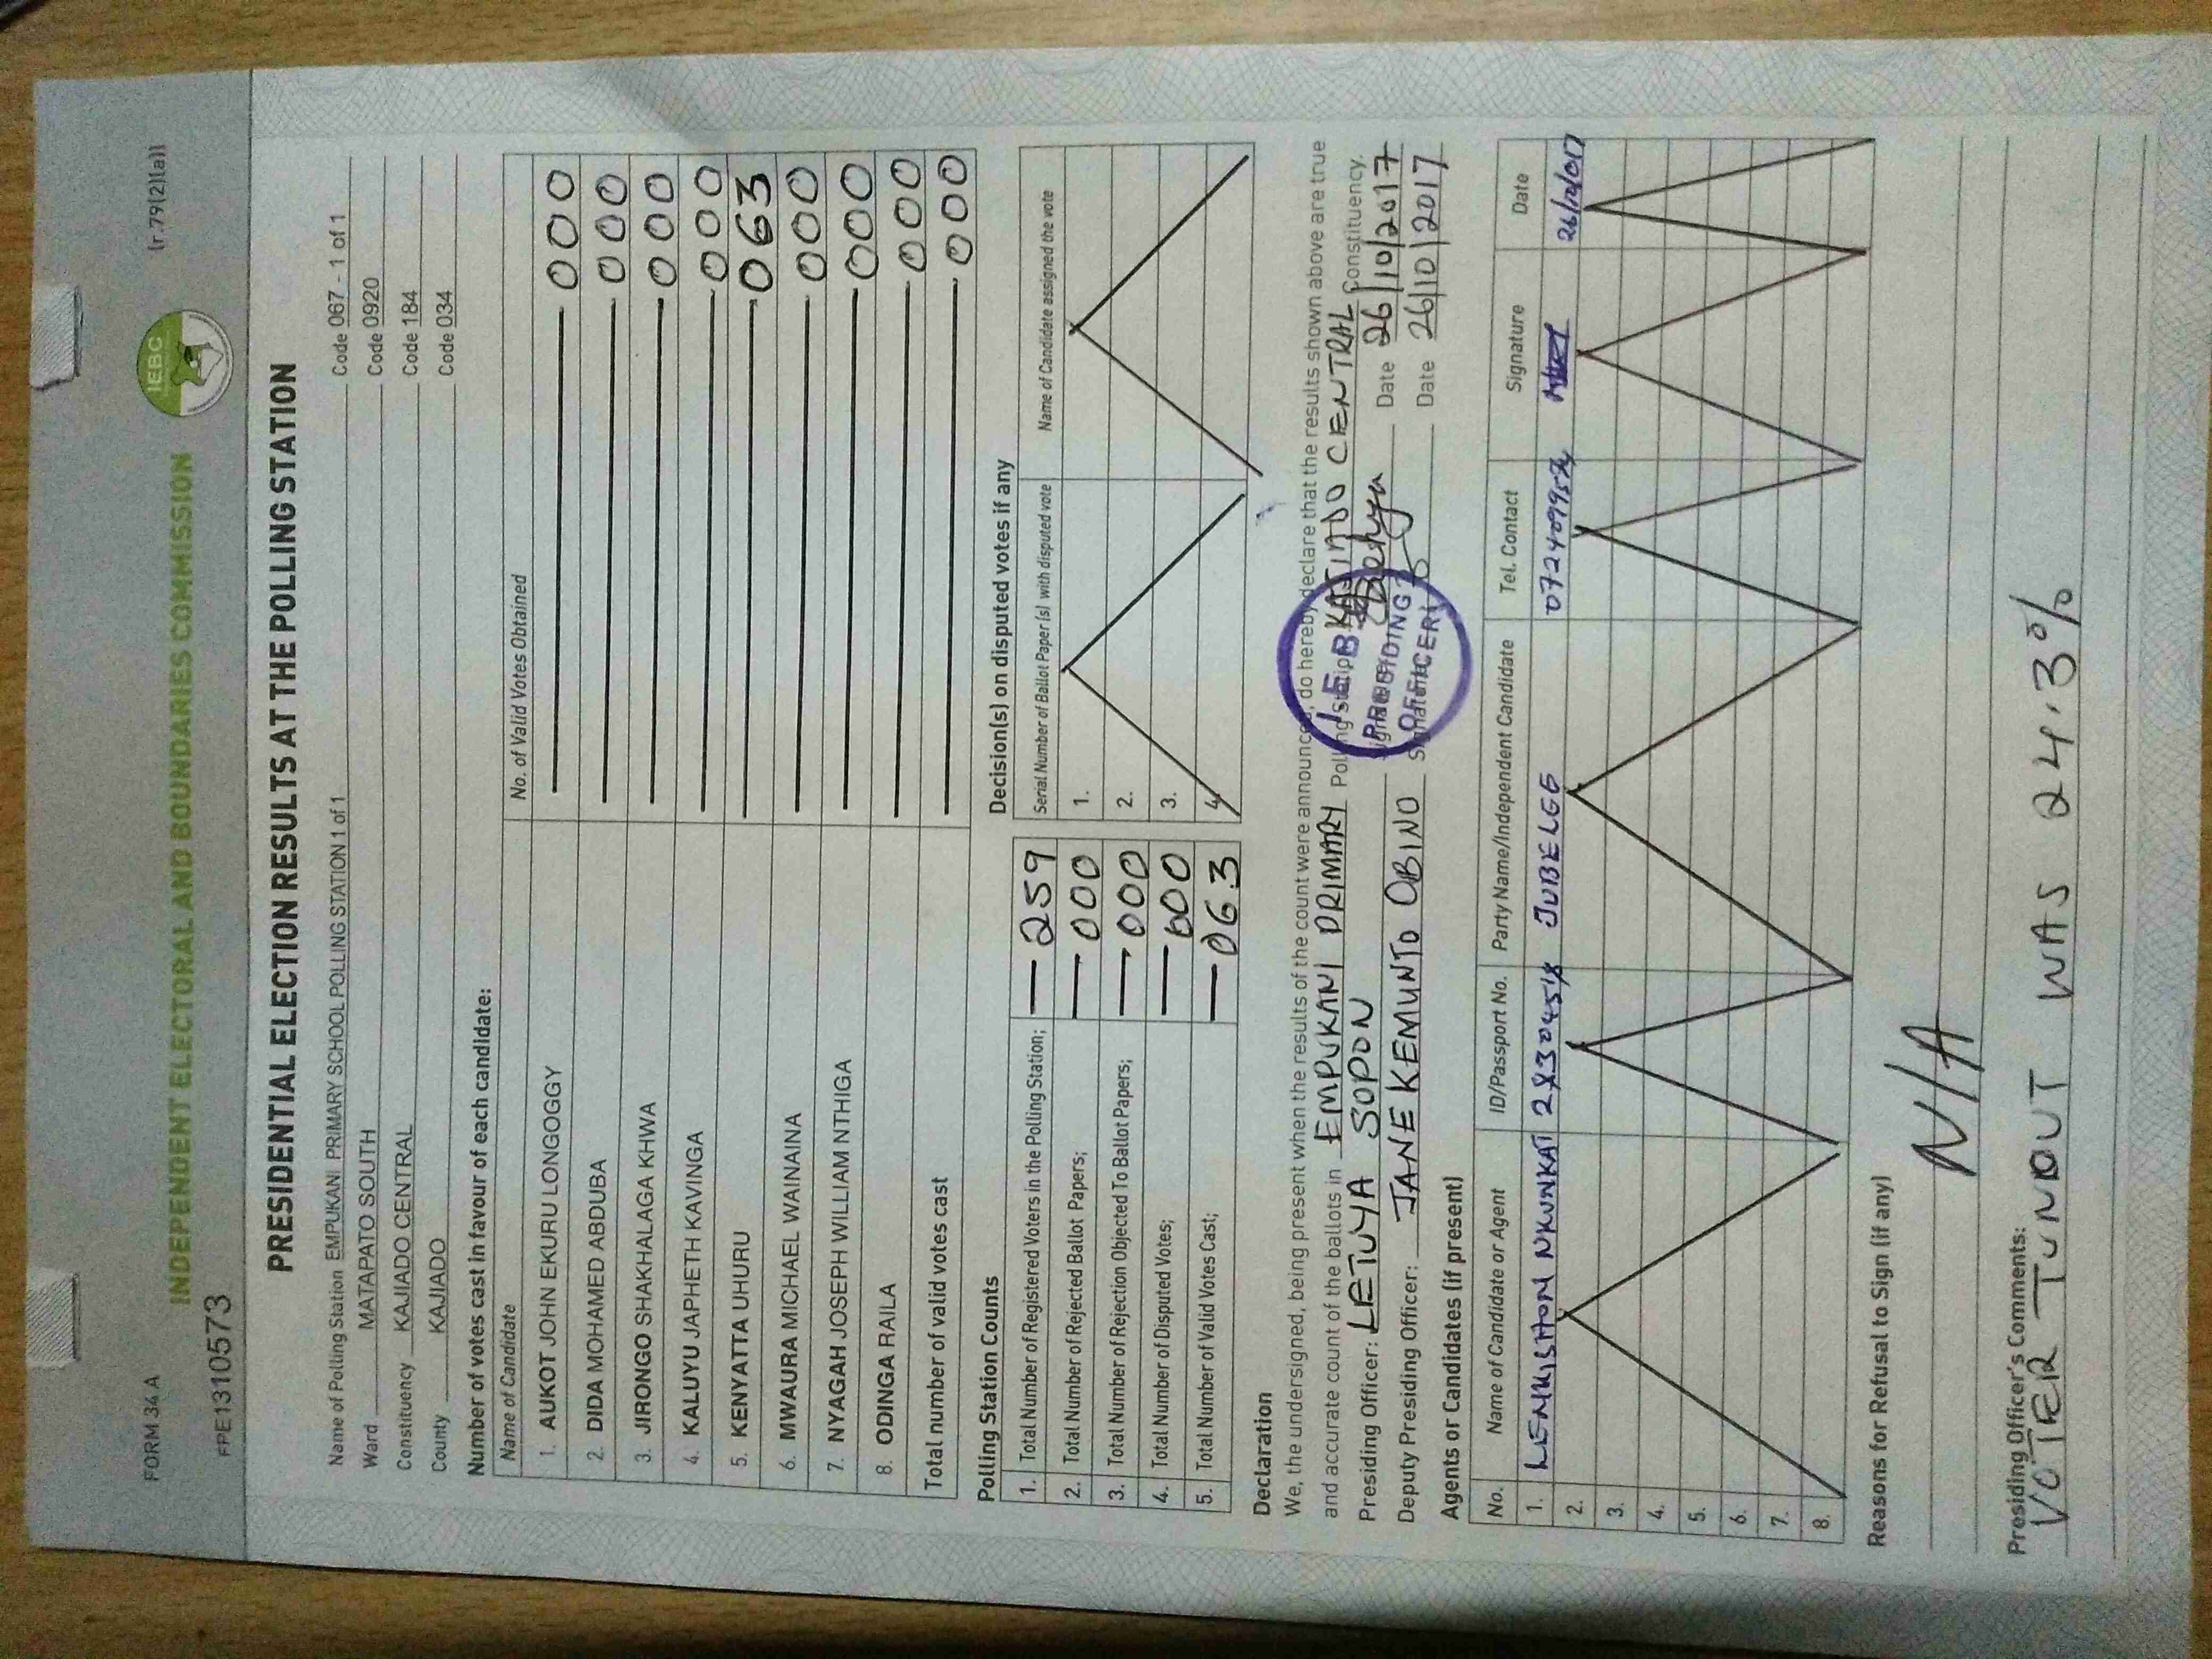 FORM 34 A
(r.79(2)(a))
INDEPENDENT ELECTORAL AND BOUNDARIES COMMISSION
IEBC
FPE1310573
PRESIDENTIAL ELECTION RESULTS AT THE POLLING STATION
Name of Polling Station EMPUKANI PRIMARY SCHOOL POLLING STATION 1 of 1 Code 067 - 1 of 1
Ward MATAPATO SOUTH Code 0920
Constituency KAJIADO CENTRAL Code 184
County KAJIADO Code 034
Number of votes cast in favour of each candidate:
Name of Candidate No. of Valid Votes Obtained
1. AUKOT JOHN EKURU LONGOGGY 000
2. DIDA MOHAMED ABDUBA 000
3. JIRONGO SHAKHALAGA KHWA 000
4. KALUYU JAPHETH KAVINGA 000
5. KENYATTA UHURU 063
6. MWAURA MICHAEL WAINAINA 000
7. NYAGAH JOSEPH WILLIAM NTHIGA 000
8. ODINGA RAILA 000
Total number of valid votes cast 000
Polling Station Counts
1. Total Number of Registered Voters in the Polling Station; 259
2. Total Number of Rejected Ballot Papers; 000
3. Total Number of Rejection Objected To Ballot Papers; 000
4. Total Number of Disputed Votes; 000
5. Total Number of Valid Votes Cast; 063
Decision(s) on disputed votes if any
Serial Number of Ballot Paper (s) with disputed vote Name of Candidate assigned the vote
1.
2.
3.
4.
Declaration
We, the undersigned, being present when the results of the count were announced, do hereby declare that the results shown above are true
and accurate count of the ballots in EMPUKANI PRIMARY Polling Station KAJIADO CENTRAL Constituency.
Presiding Officer: LETUYA SOPON Signature Date 26/10/2017
Deputy Presiding Officer: JANE KEMUNTO OBINO Signature Date 26/10/2017
I E B
PRESIDING
OFFICER
Agents or Candidates (if present)
No. Name of Candidate or Agent ID/Passport No. Party Name/Independent Candidate Tel. Contact Signature Date
1. JUBELEE
2.
3.
4.
5.
6.
7.
8.
Reasons for Refusal to Sign (if any)
N/A
Presiding Officer's Comments:
VOTER TUNOUT WAS 24.3%